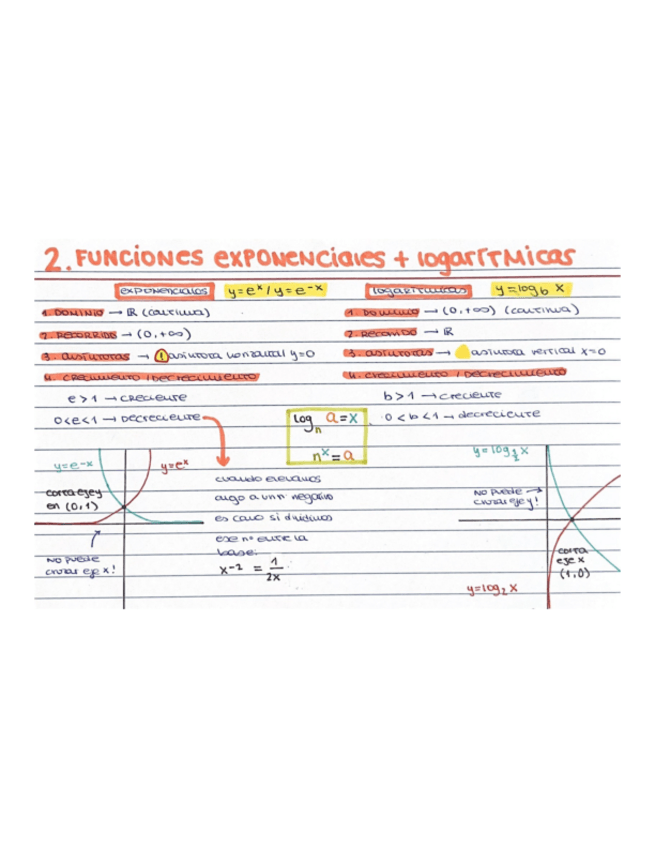 2. FUNCIONES EXPONENCIALES + LOGARÍTMICAS
EXPONENCIALES y=eˣ/y=e⁻ˣ
1. DOMINIO → ℝ (continua)
2. RECORRIDO → (0,+∞)
3. asíntotas → 1 asíntota horizontal y=0
4. CRECIMIENTO / DECRECIMIENTO
e>1 → creciente
0<e<1 → Decreciente
cuando elevamos
algo a un nº negativo
es como si dividimos
ese nº entre la
base:
x⁻² = 1/2x
y=e⁻ˣ
y=eˣ
corta eje y
en (0,1)
NO puede
cruzar eje x!
log_n a=x
nˣ=a
LOGARÍTMICAS y=log_b x
1. DOMINIO → (0,+∞) (continua)
2. RECORRIDO → ℝ
3. asíntotas → asíntota vertical x=0
4. CRECIMIENTO / DECRECIMIENTO
b>1 → creciente
0<b<1 → decreciente
y=log_½ x
NO puede →
cruzar eje y!
corta
eje x
(1,0)
y=log₂ x